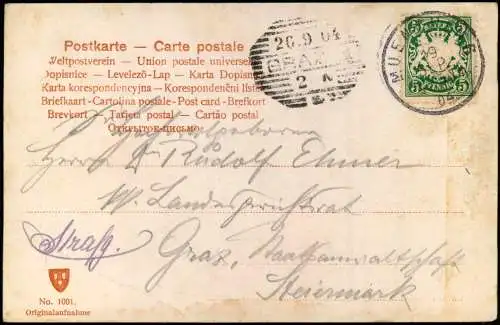 Postkarte – Carte postale
Weltpostverein – Union postale universelle
Dopisnice – Levelező-Lap – Karta Dopisnia
Karta korespondencyjna – Korespondenční lístek
Briefkaart – Cartolina postale – Post card – Brefkort
Brevkort – Tarjeta postal – Cartão postal
Открытое письмо
26.9.04
GRAZ
2
BAYERN
5 5
PFENNIG
Hochwohlgeboren
Herrn Dr Rudolf Ehmer
K. Landesgerichtsrat
Graz, Staatsanwaltschaft
Steiermark
No. 1001.
Originalaufnahme